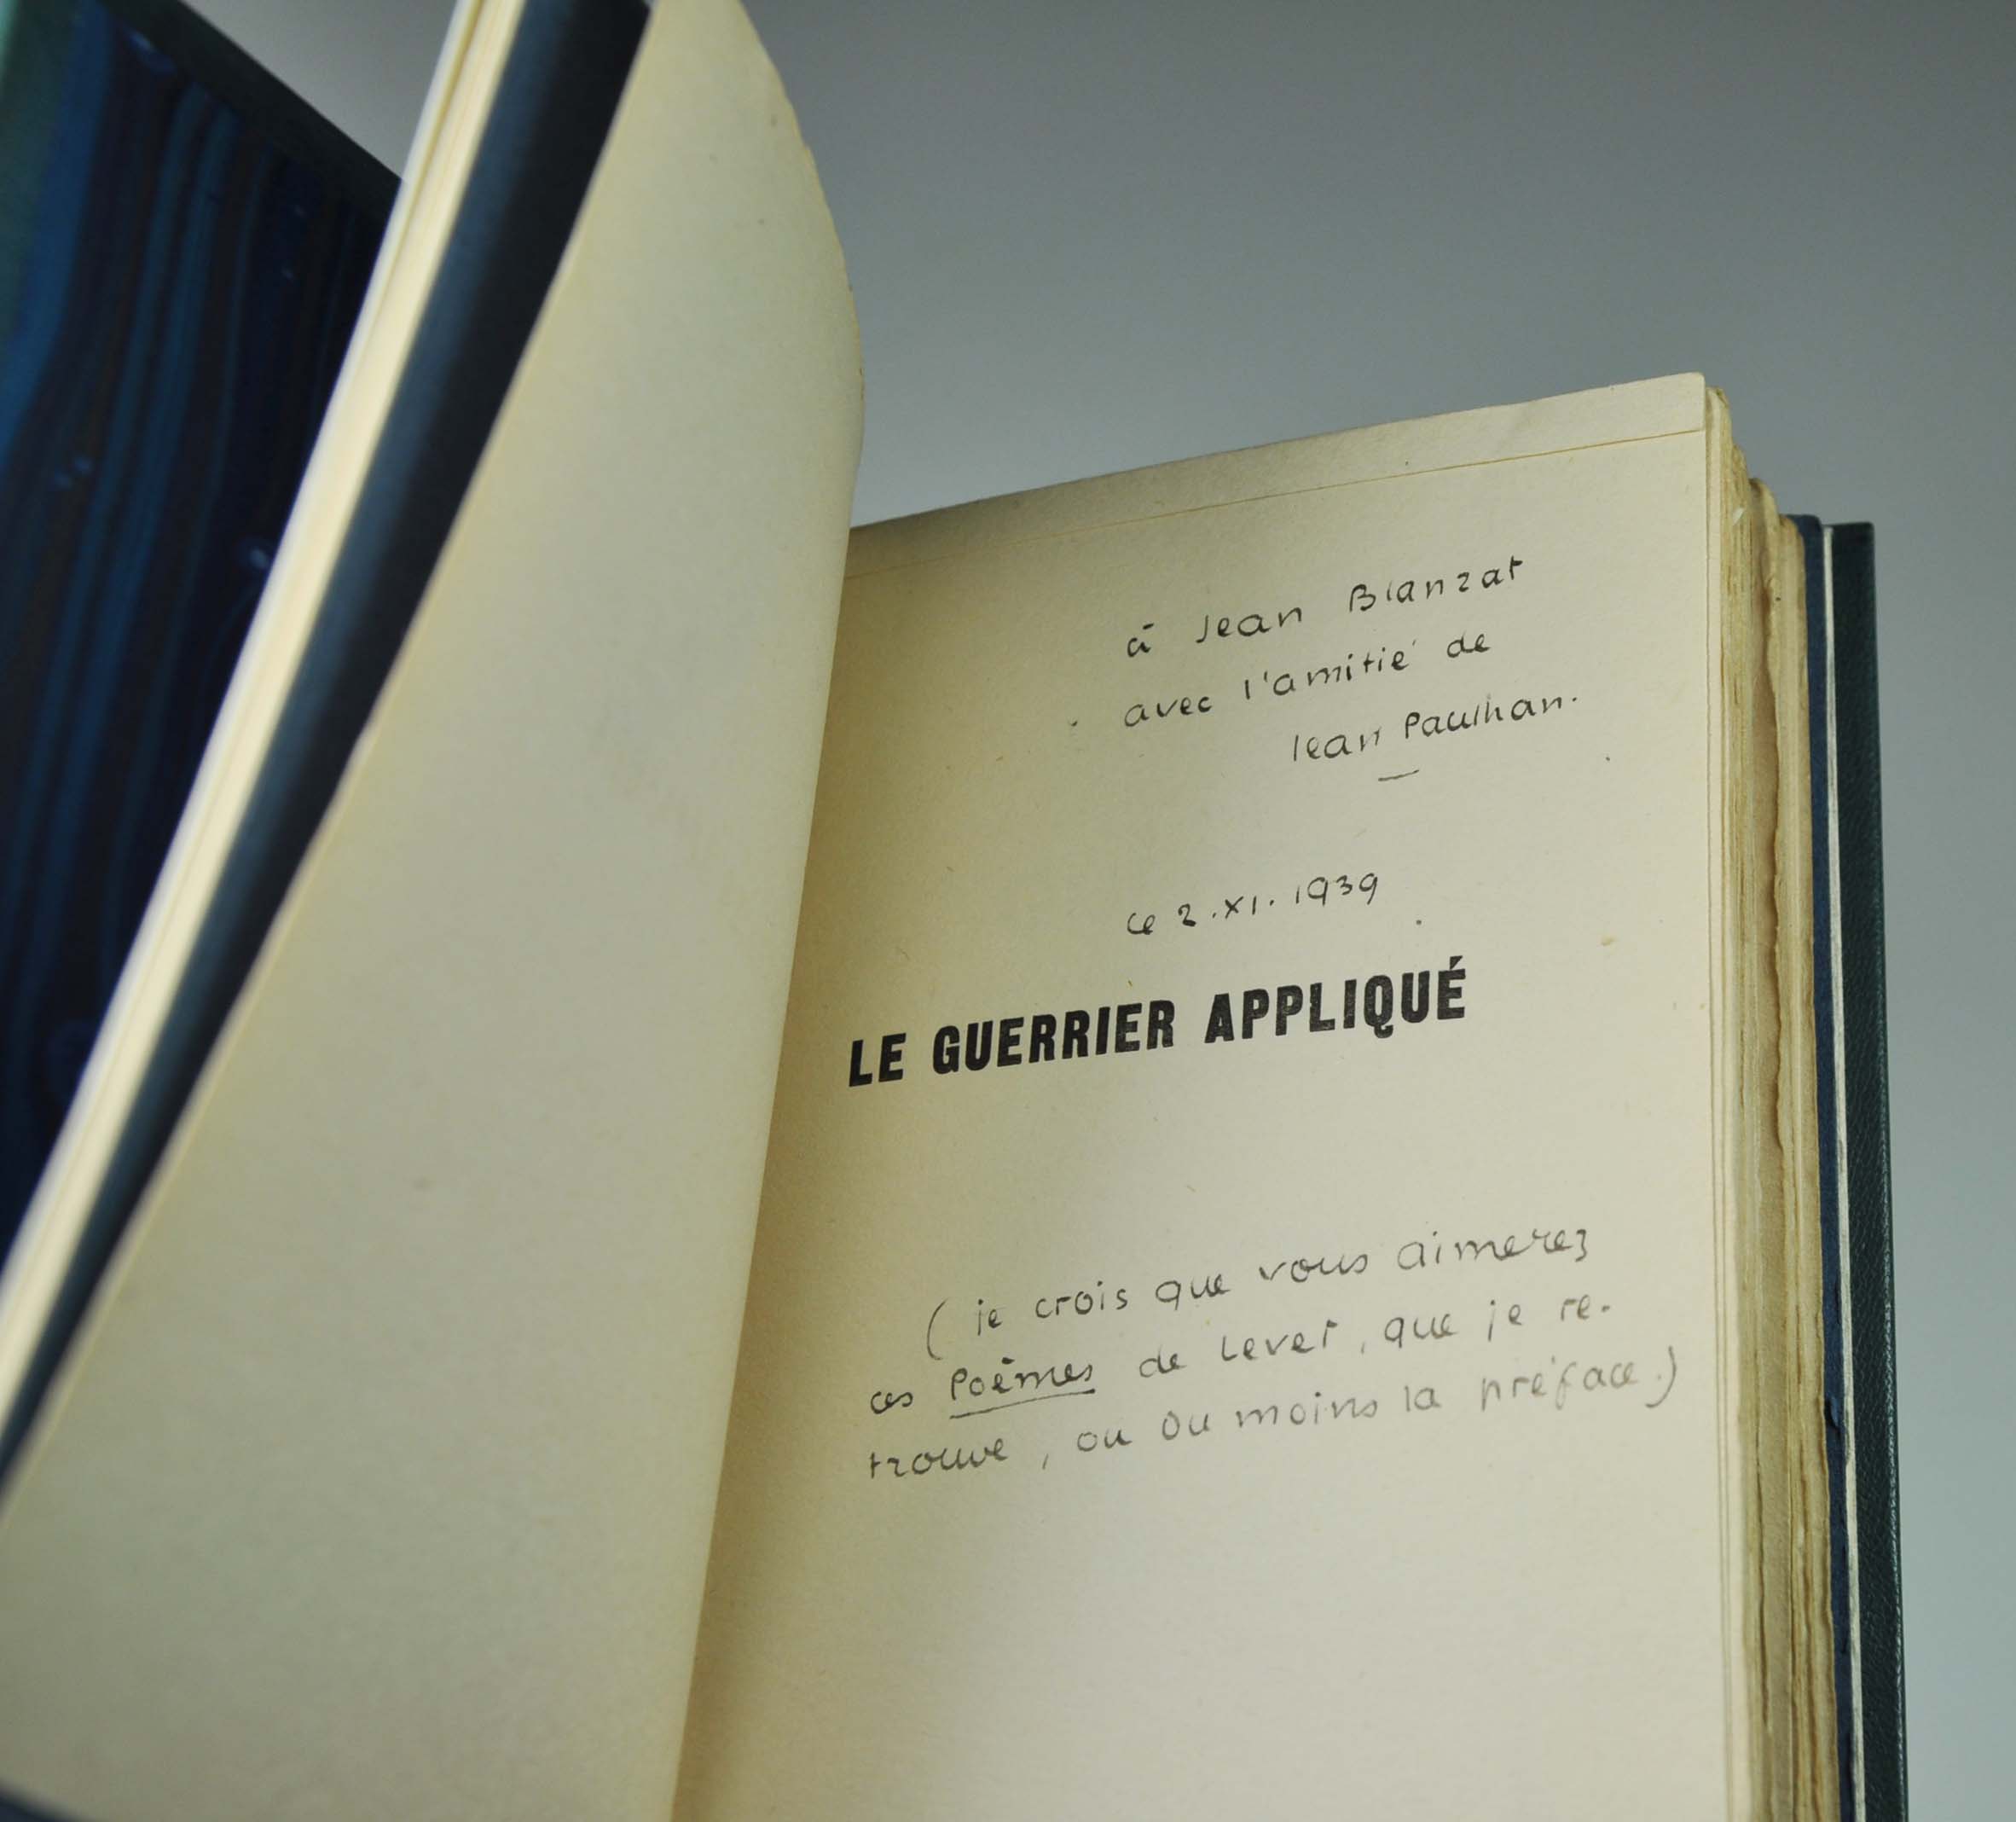 à Jean Blanzat
avec l'amitié de
Jean Paulhan.
le 2.XI.1939
LE GUERRIER APPLIQUÉ
( je crois que vous aimerez
ces Poèmes de Levet, que je re-
trouve, ou du moins la préface.)